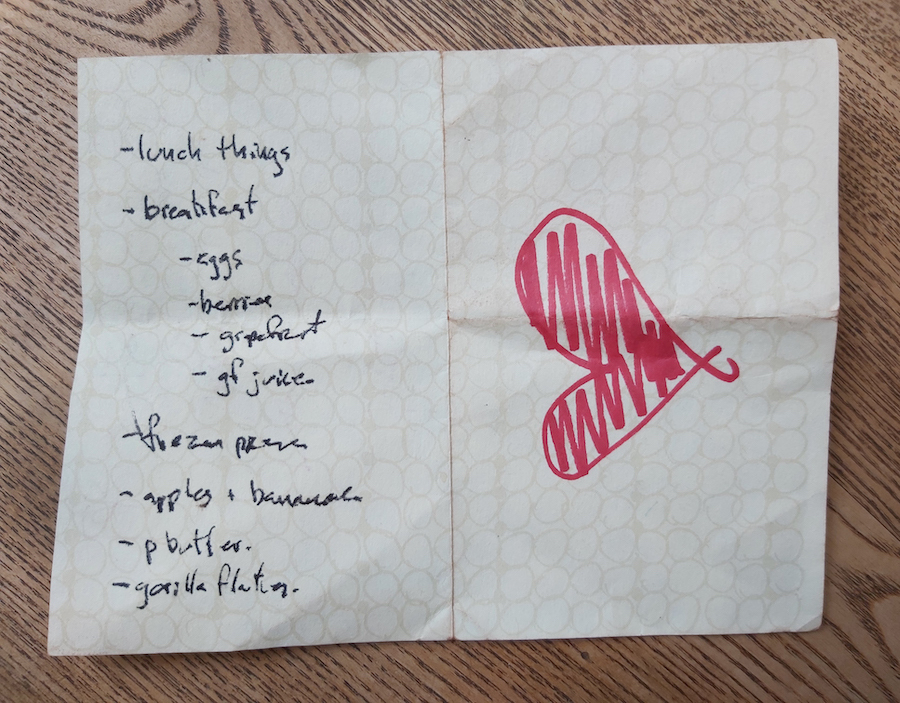 - lunch things
- breakfast
- eggs
- berries
- grapefruit
- gf juice.
- frozen
- apples + bananas
- p butter.
- gorilla flakes.